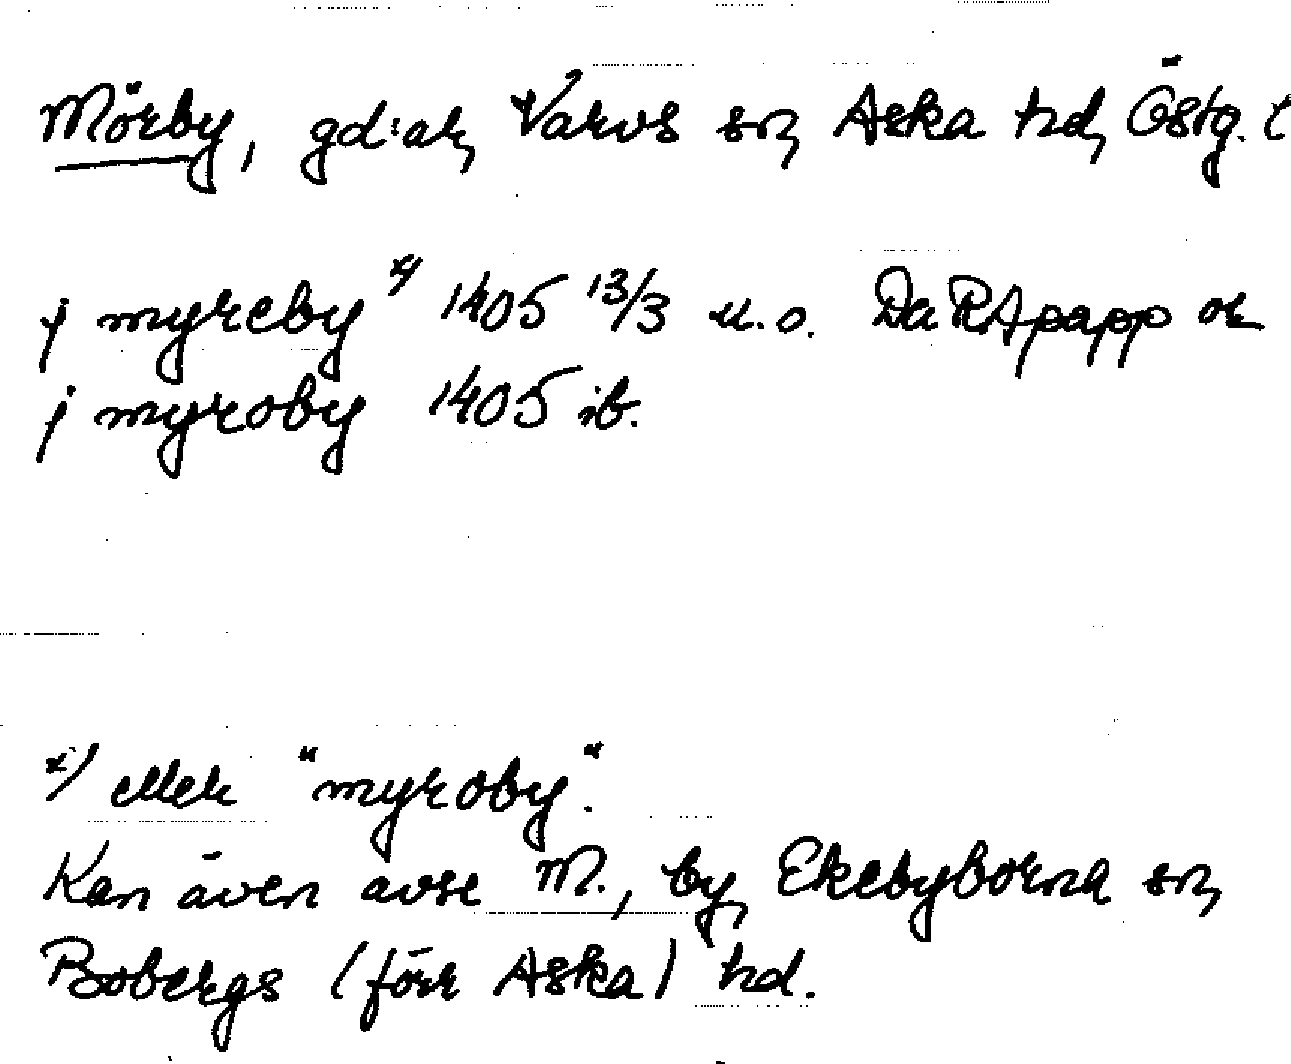 Mörby, gd:ar, Varvs sn, Aska hd, Östg. l
j myreby x) 1405 13/3 u.o. Da RApapp or
j myroby 1405 ib.
x) eller "myroby".
Kan även avse M., by, Ekebyborna sn,
Bobergs (förr Aska) hd.